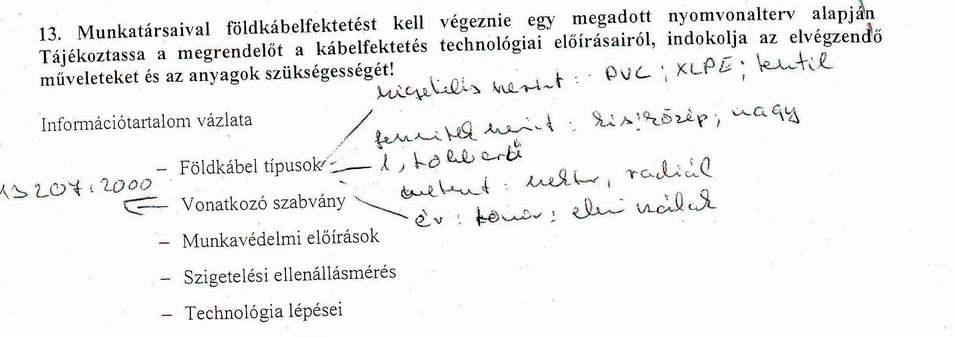 13. Munkatársaival földkábelfektetést kell végeznie egy megadott nyomvonalterv alapján
Tájékoztassa a megrendelőt a kábelfektetés technológiai előírásairól, indokolja az elvégzendő
műveleteket és az anyagok szükségességét!
szigetelés szerint : PVC ; XLPE ;
Információtartalom vázlata
szerint : kis; közép; nagy
– Földkábel típusok
1, több erű
13207:2000
radiál
– Vonatkozó szabvány
– Munkavédelmi előírások
– Szigetelési ellenállásmérés
– Technológia lépései